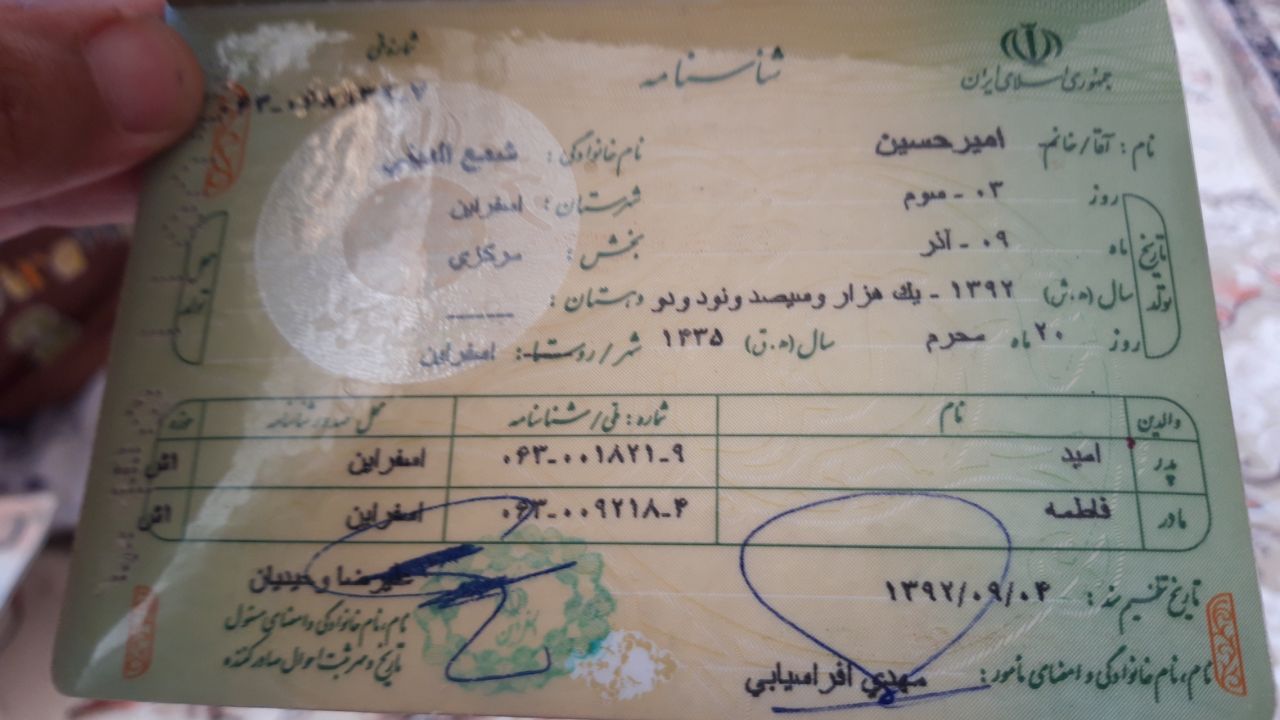 جمهوری اسلامی ایران
شناسنامه
شماره ملی
نام: آقا/خانم امیرحسین نام خانوادگی:
تاریخ تولد
روز ۰۳ - سوم شهرستان: اسفراین
ماه ۰۹ - آذر بخش: مرکزی
سال (ه.ش) ۱۳۹۲ - یک هزار وسیصد ونود ودو دهستان: ـــــ
روز ۲۰ ماه محرم سال (ه.ق) ۱۴۳۵ شهر/روستا: اسفراین
والدین نام شماره: ملی/شناسنامه محل صدور شناسنامه حوزه
پدر امید ۰۶۳-۰۰۱۸۲۱-۹ اسفراین
مادر فاطمه ۰۶۳-۰۰۹۲۱۸-۴ اسفراین
تاریخ تنظیم سند: ۱۳۹۲/۰۹/۰۴
علیرضا وحیدیان
نام، نام خانوادگی و امضای مسئول
تاریخ و مهر ثبت احوال صادرکننده
نام، نام خانوادگی و امضای مأمور: مهدي افراسيابي